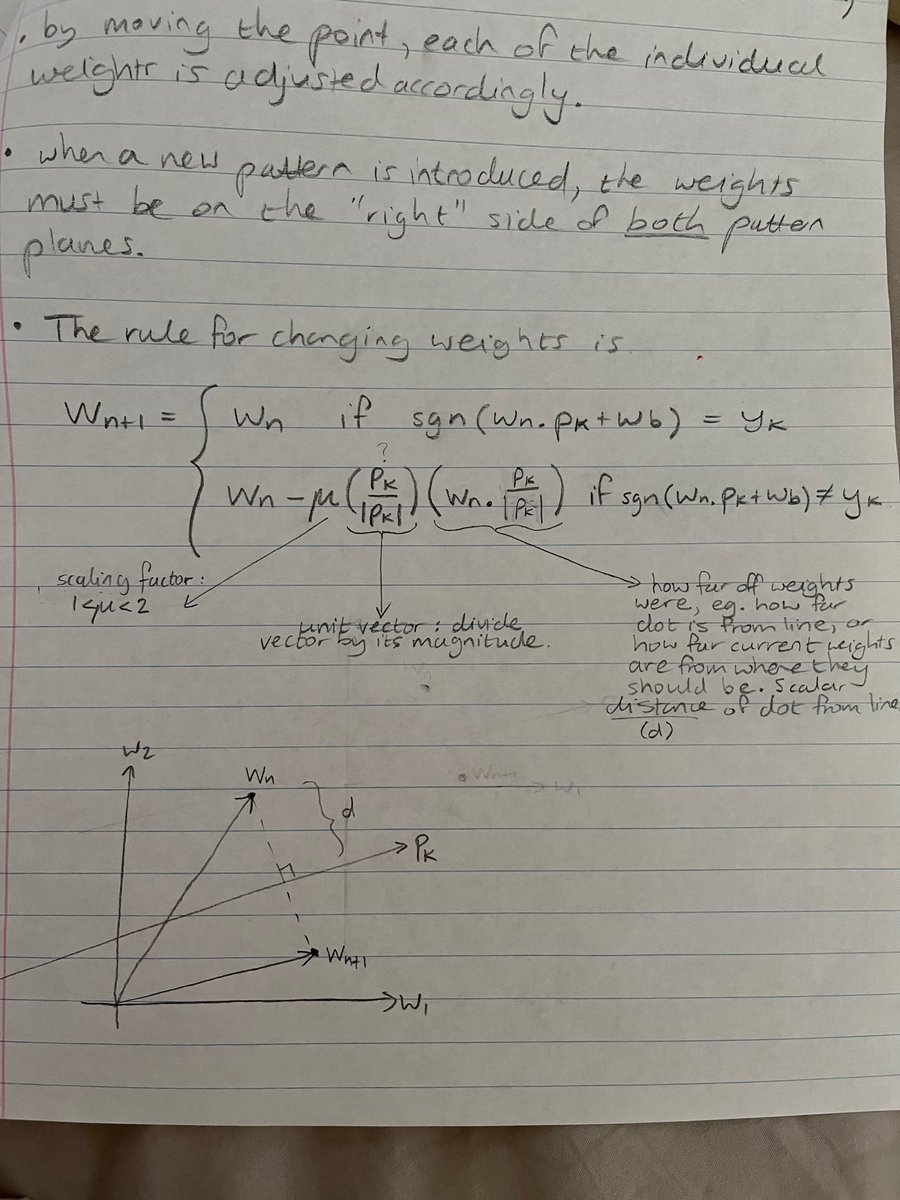 . by moving the point, each of the individual
weights is adjusted accordingly.
• when a new pattern is introduced, the weights
must be on the "right" side of both patten
planes.
• The rule for changing weights is
Wn+1 = { Wn if sgn(Wn.PK+Wb) = yK
?
Wn - μ(PK/|PK|)(Wn.PK/|PK|) if sgn(Wn.PK+Wb) ≠ yK
scaling factor:
1<μ<2
unit vector : divide
vector by its magnitude.
how far off weights
were, eg. how far
dot is from line, or
how far current weights
are from where they
should be. Scalar
distance of dot from line
(d)
W2
Wn
d
PK
Wn+1
W1